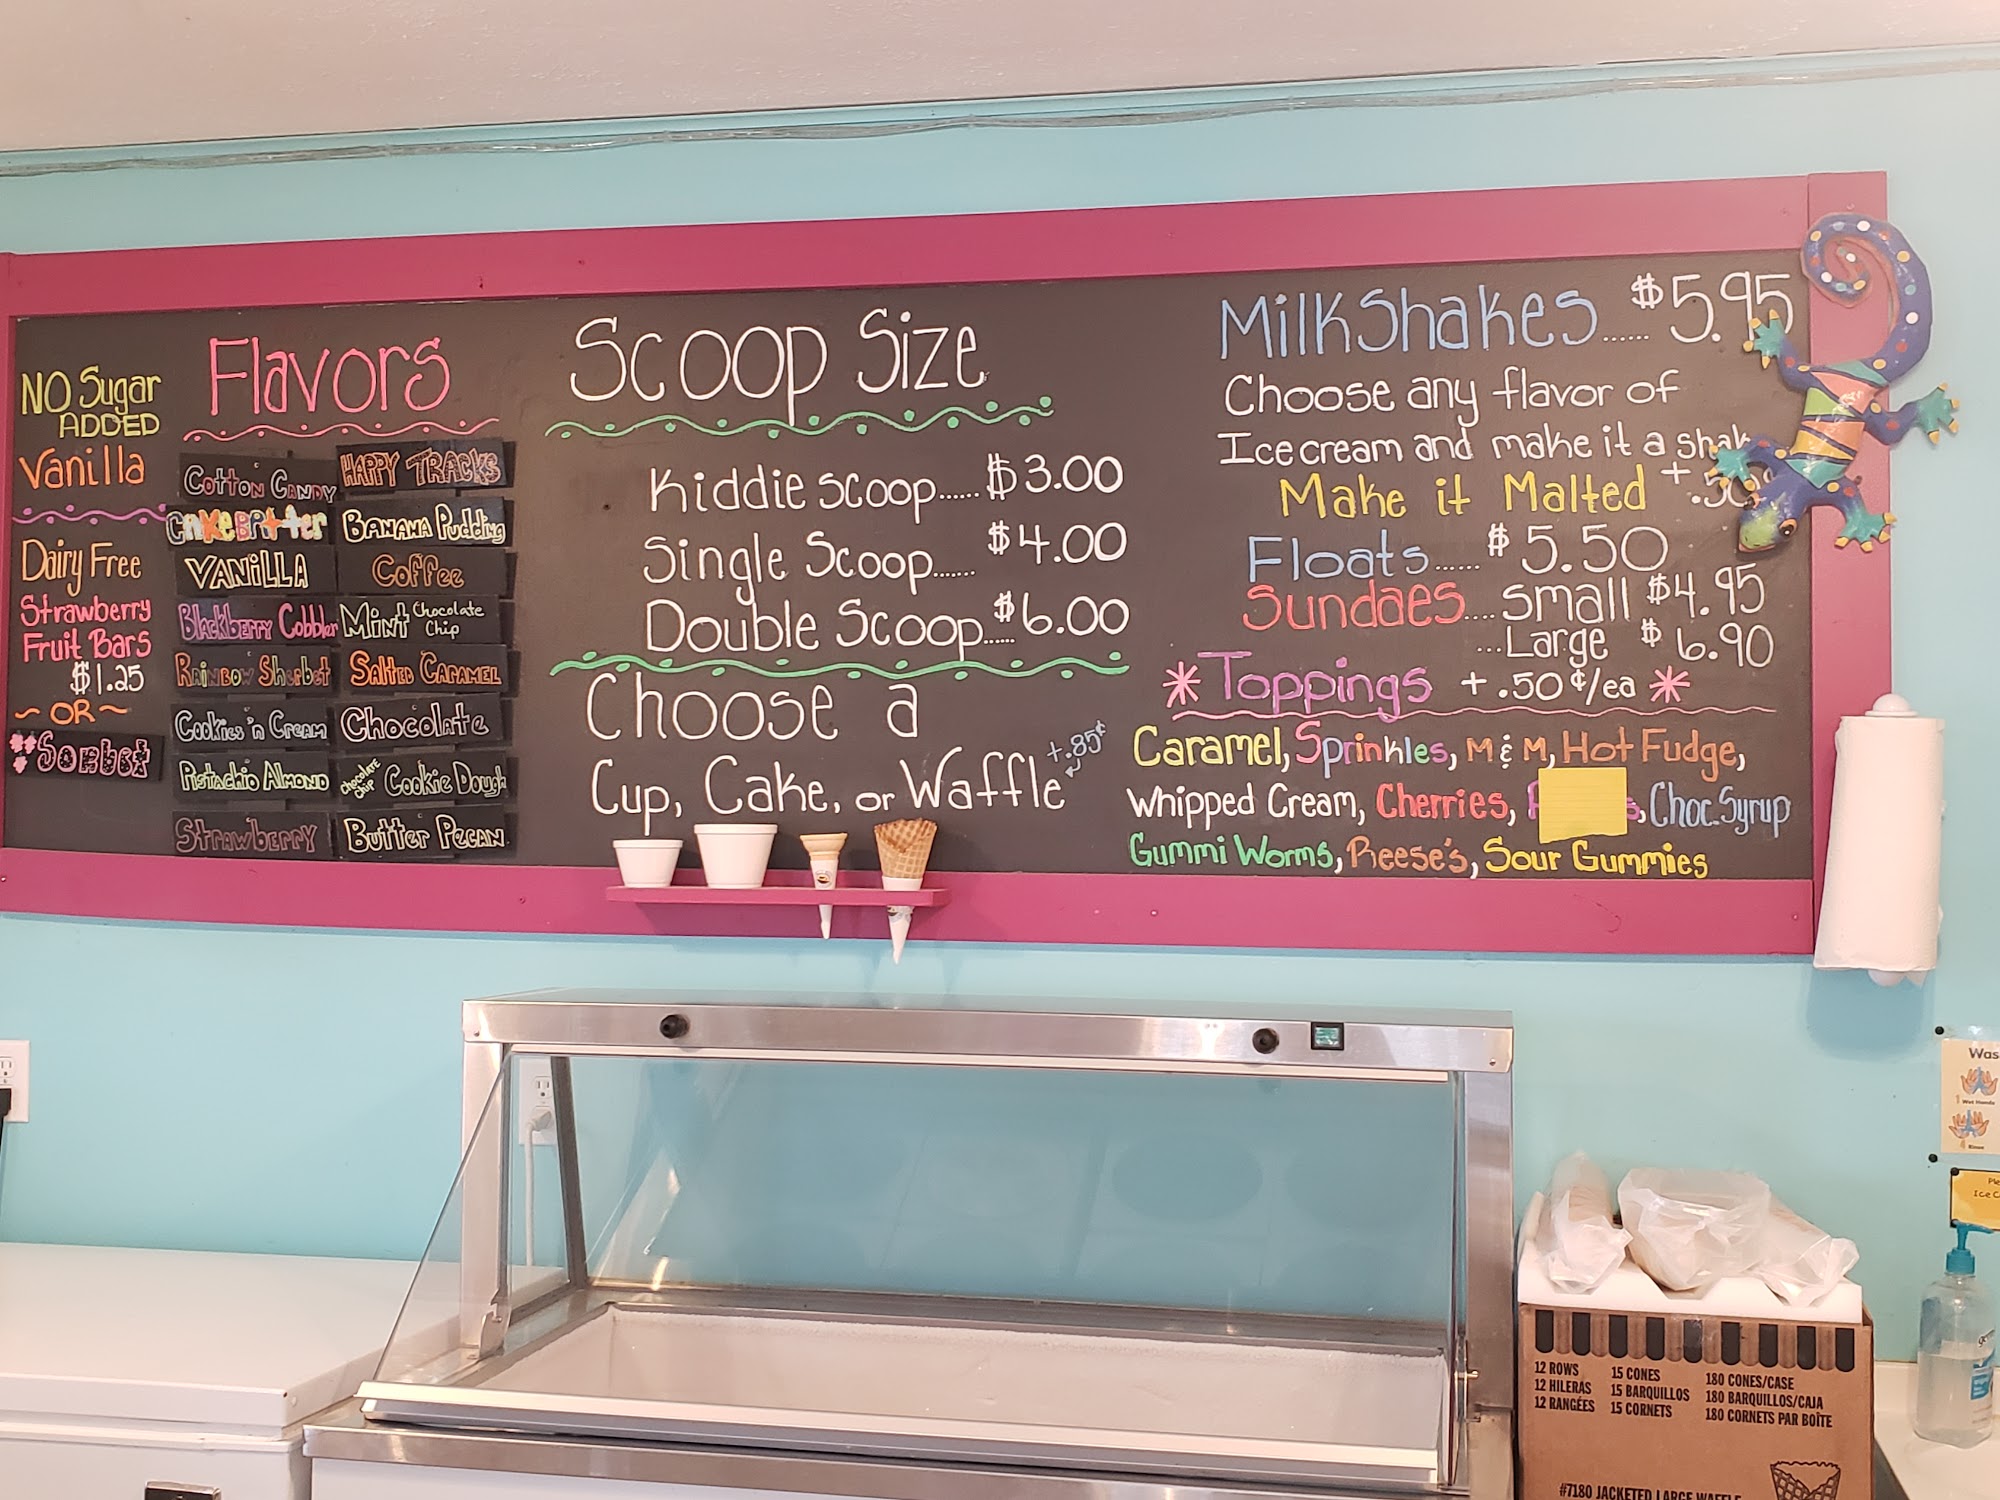 NO Sugar
ADDED
Vanilla
Dairy Free
Strawberry
Fruit Bars
$1.25
~ OR ~
Sorbet
Flavors
Cotton Candy
CakeBatter
VANiLLA
Blackberry Cobbler
Rainbow Sherbet
Cookies 'n Cream
Pistachio Almond
Strawberry
HAPPY TRACKS
Banana Pudding
Coffee
Mint Chocolate Chip
Salted Caramel
Chocolate
Chocolate Chip Cookie Dough
Butter Pecan
Scoop Size
Kiddie scoop......$3.00
Single Scoop....... $4.00
Double Scoop......$6.00
Choose a
Cup, Cake, or Waffle +.85¢
MilkShakes......$5.95
Choose any flavor of
Ice cream and make it a
Make it Malted +.50
Floats...... $5.50
Sundaes....small $4.95
...Large $6.90
*Toppings +.50¢/ea*
Caramel, Sprinkles, M & M, Hot Fudge,
Whipped Cream, Cherries, Choc. Syrup
Gummi Worms, Reese's, Sour Gummies
Was
1 Wet Hands
4 Rinse
Ice C
12 ROWS 15 CONES 180 CONES/CASE
12 HILERAS 15 BARQUILLOS 180 BARQUILLOS/CAJA
12 RANGÉES 15 CORNETS 180 CORNETS PAR BOÎTE
#7180 JACKETED LARGE WAFFLE